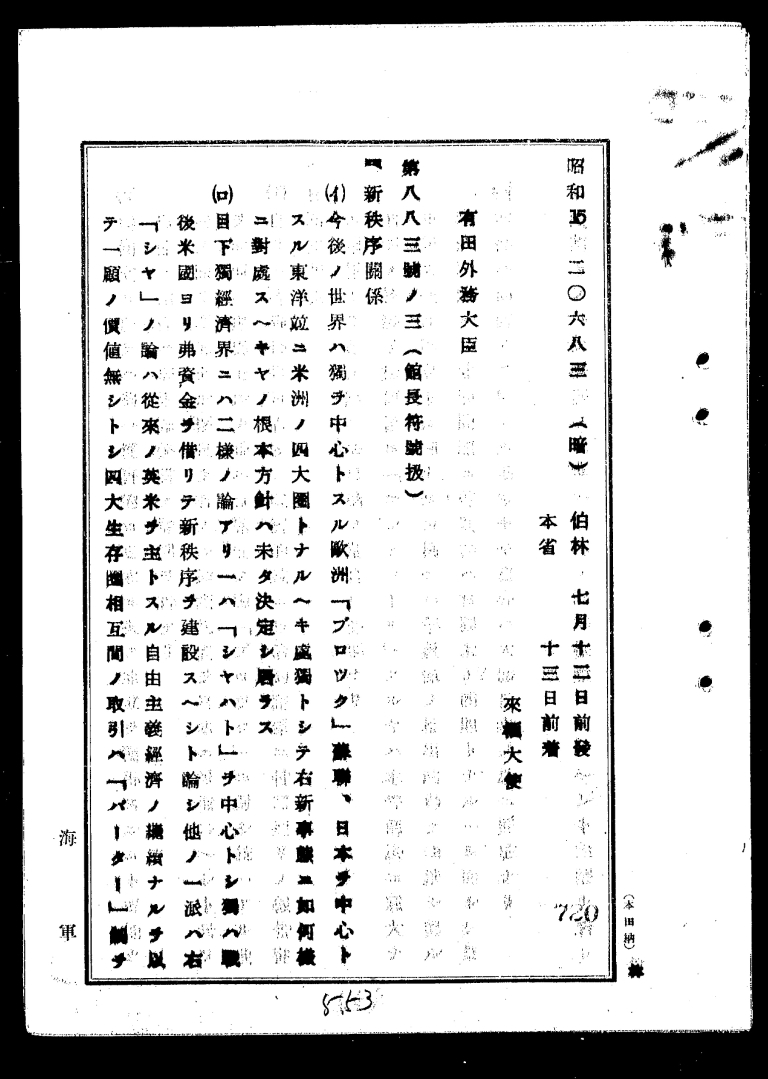 昭和15 二〇六八三 (暗) 伯林 七月十二日前發
本省 十三日前着
來栖大使
有田外務大臣
第八八三號ノ三(館長符號扱)
新秩序關係
(イ)今後ノ世界ハ獨ヲ中心トスル歐洲「ブロツク」蘇聯、日本ヲ中心ト
スル東洋竝ニ米洲ノ四大圏トナルヘキ處獨トシテ右新事態ニ如何樣
ニ對處スヘキヤノ根本方針ハ未タ決定シ居ラス
(ロ)目下獨經濟界ニハ二樣ノ論アリ一ハ「シヤハト」ヲ中心トシ獨ハ戰
後米國ヨリ弗資金ヲ借リテ新秩序ヲ建設スヘシト論シ他ノ一派ハ右
「シヤ」ノ論ハ從來ノ英米ヲ主トスル自由主義經濟ノ繼續ナルヲ以
テ一顧ノ價値無シトシ四大生存圏相互間ノ取引ハ「バーター」制ヲ
海軍
720
(本田納)
553